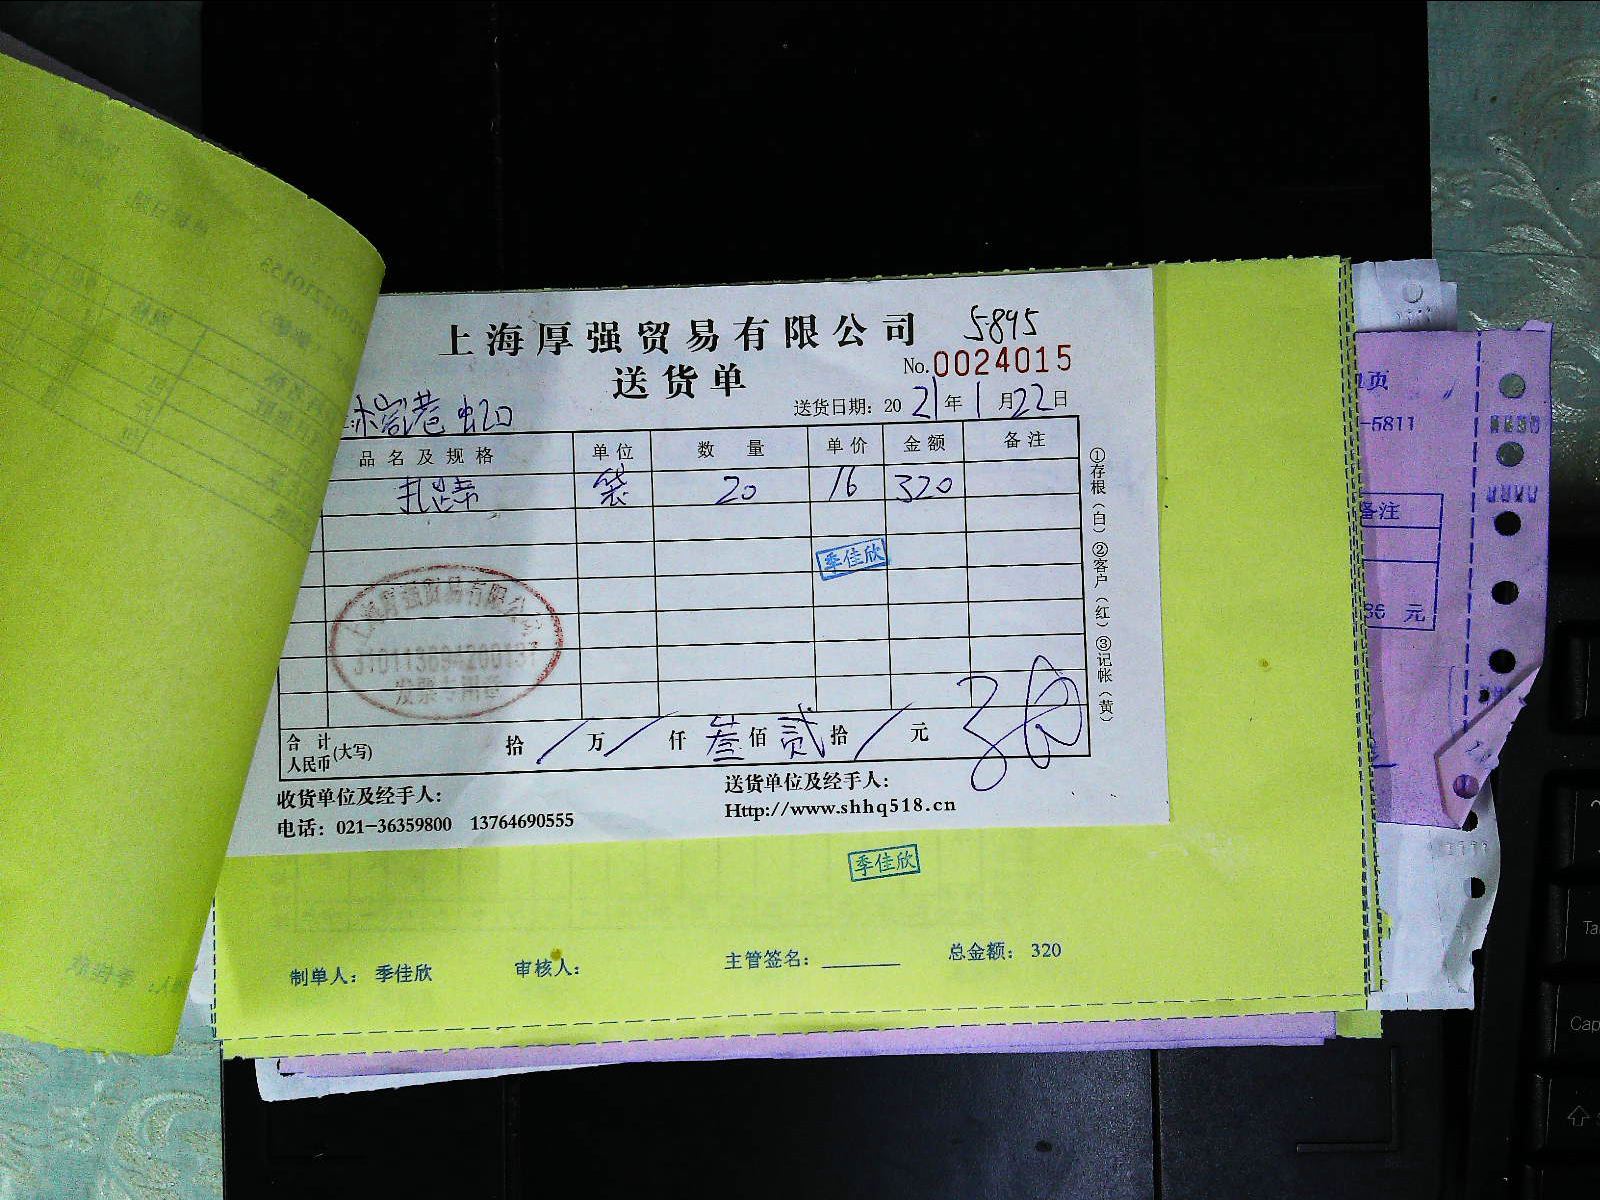 上海厚强贸易有限公司 5895
送货单 No.0024015
送货日期：2021年1月22日
品名及规格 单位 数量 单价 金额 备注
扎带 袋 20 16 320
季佳欣
上海厚强贸易有限公司
310113694200137
发票专用章
合计人民币(大写) 拾/万/仟叁佰贰拾/元
收货单位及经手人： 送货单位及经手人：
电话：021-36359800 13764690555 Http://www.shhq518.cn
①存根(白)②客户(红)③记帐(黄)
季佳欣
制单人：季佳欣 审核人： 主管签名： 总金额：320
页
-5811
备注
元
Cap